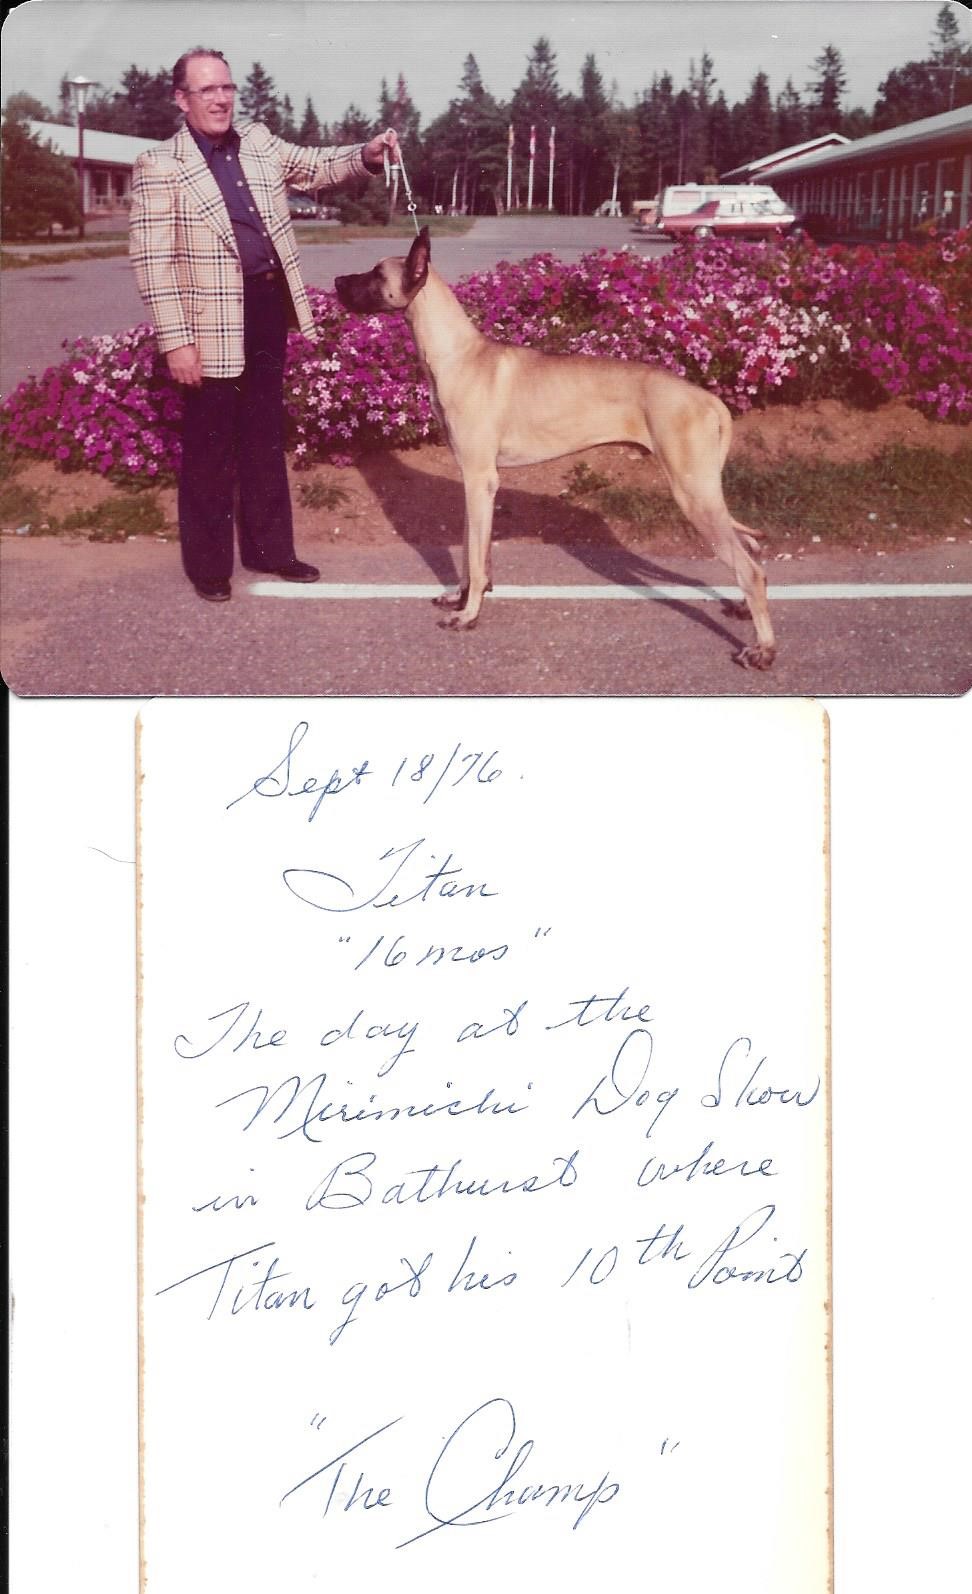 Sept 18/76.
Titan
"16 mos"
The day at the
Mirimichi Dog Show
in Bathurst where
Titan got his 10th Point
"The Champ"